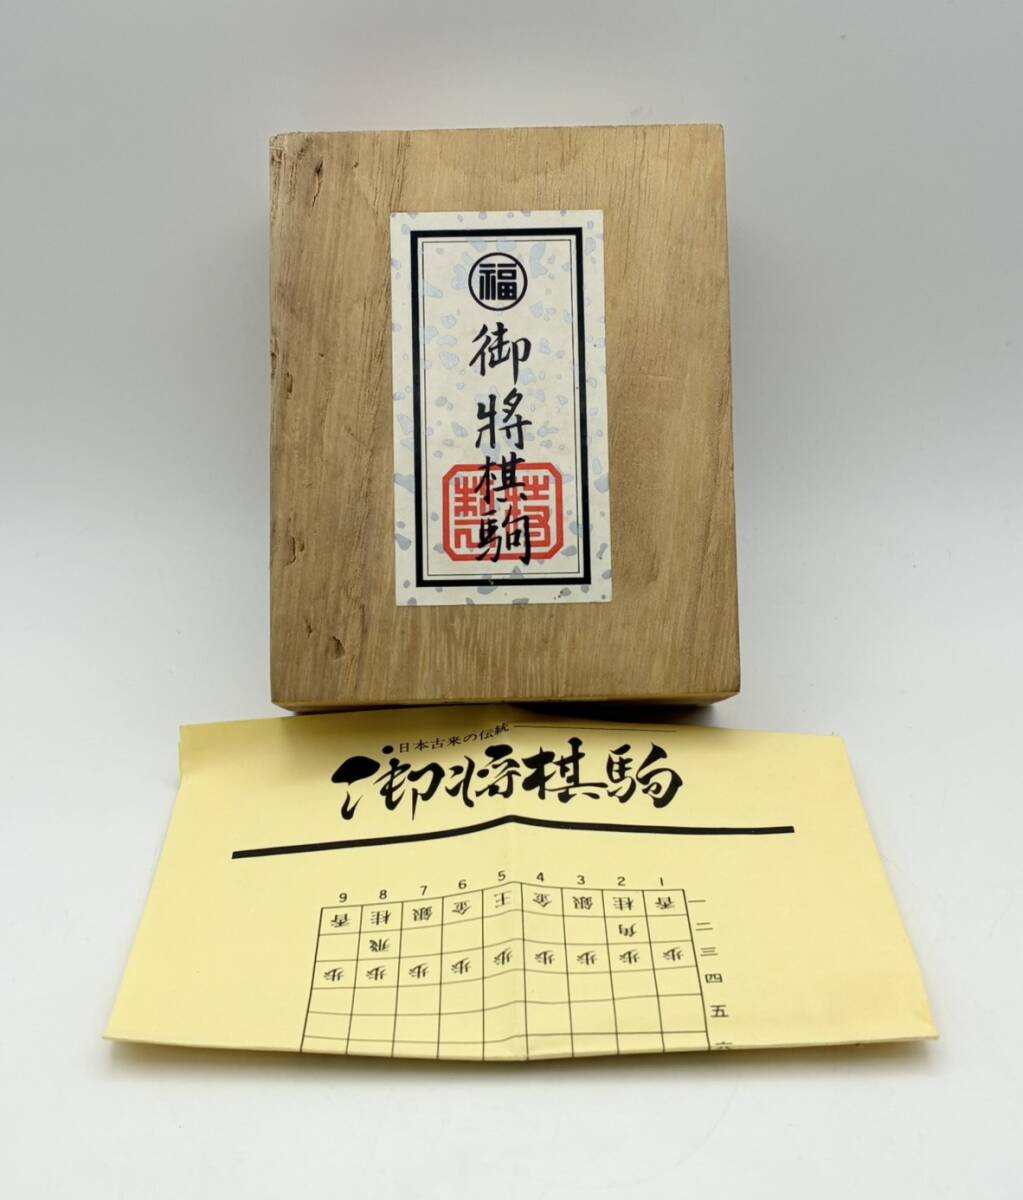 福
御將棋駒
特製
日本古来の伝統
御将棋駒
9 8 7 6 5 4 3 2 1
香 桂 銀 金 王 金 銀 桂 香 一
飛 角 二
歩 歩 歩 歩 歩 歩 歩 歩 歩 三
四
五
六